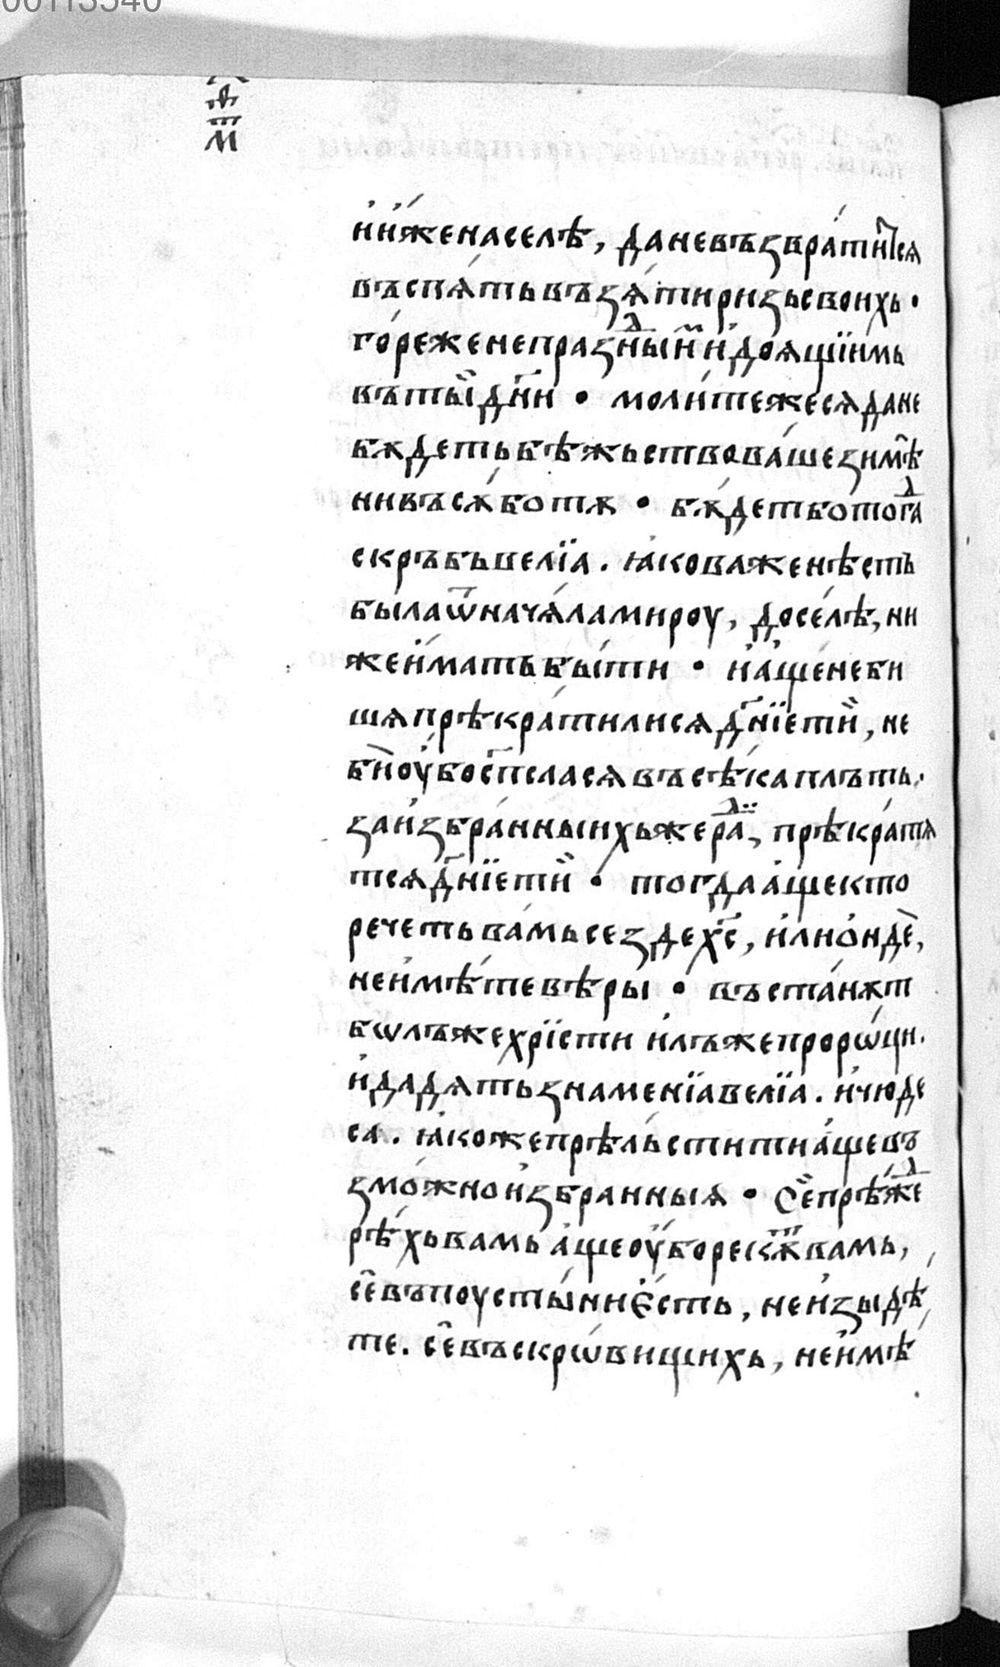 00113540
й и́же на селѣ, да не възврати́тся
въспѧ́ть въ зѧ́ти ризь своихь·
го́ре же непразⷣны̏и и҆ доѧщїимь
въ ты̏ дн҃и · моли́те же сѧ да не
бѫдеть бѣжьство ва́ше зимѣ
ни въ сѫботѫ · бѫ́деть бо тогⷣа
скръбь велїа . ꙗкова же нѣсть
была ѿ начѧ́ла мироу, досе́лѣ, ни
же и҆мать бы́ти · и҆ а҆ще не би
шѧ прѣкра́тили сѧ дн҃їе ти̏, не
би̏ оу҆бо сп҃сла сѧ въсѣ́ка плъть.
за и҆збра́нныихь же раⷣ, прѣкра́тѧ
тсѧ дн҃їе ти̏ · тогда а҆ще кто
речеть ва́мь се зде х҃с, и҆ли о҆нде̏,
не и҆мѣ́те вѣры · въста́нѫт
бѡ лъже хрїсти и҆ лъже проро́ци.
и҆ дадѧть знаменїа велїа . и҆ чюде
са . ꙗкоже прѣльстити а҆ще въ
змо́жно и҆збранныѧ · Се̏ прѣⷤже
рѣ́хь вамь а҆ще оу҆бо рекѫт вамь,
се̑ въ поусты́ни є҆сть, не и҆зыдѣ
те. се̑ въ скро́вищихь, не и҆мѣ